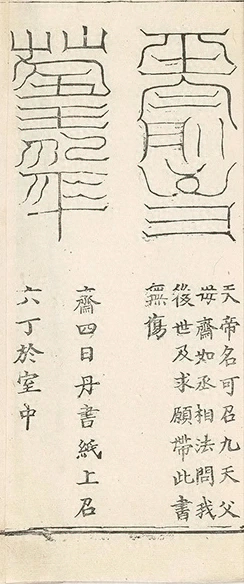 天帝名可召九天父
母齋如丞相法問我
後世及求願帶此書
無傷
齋四日丹書紙上召
六丁於室中